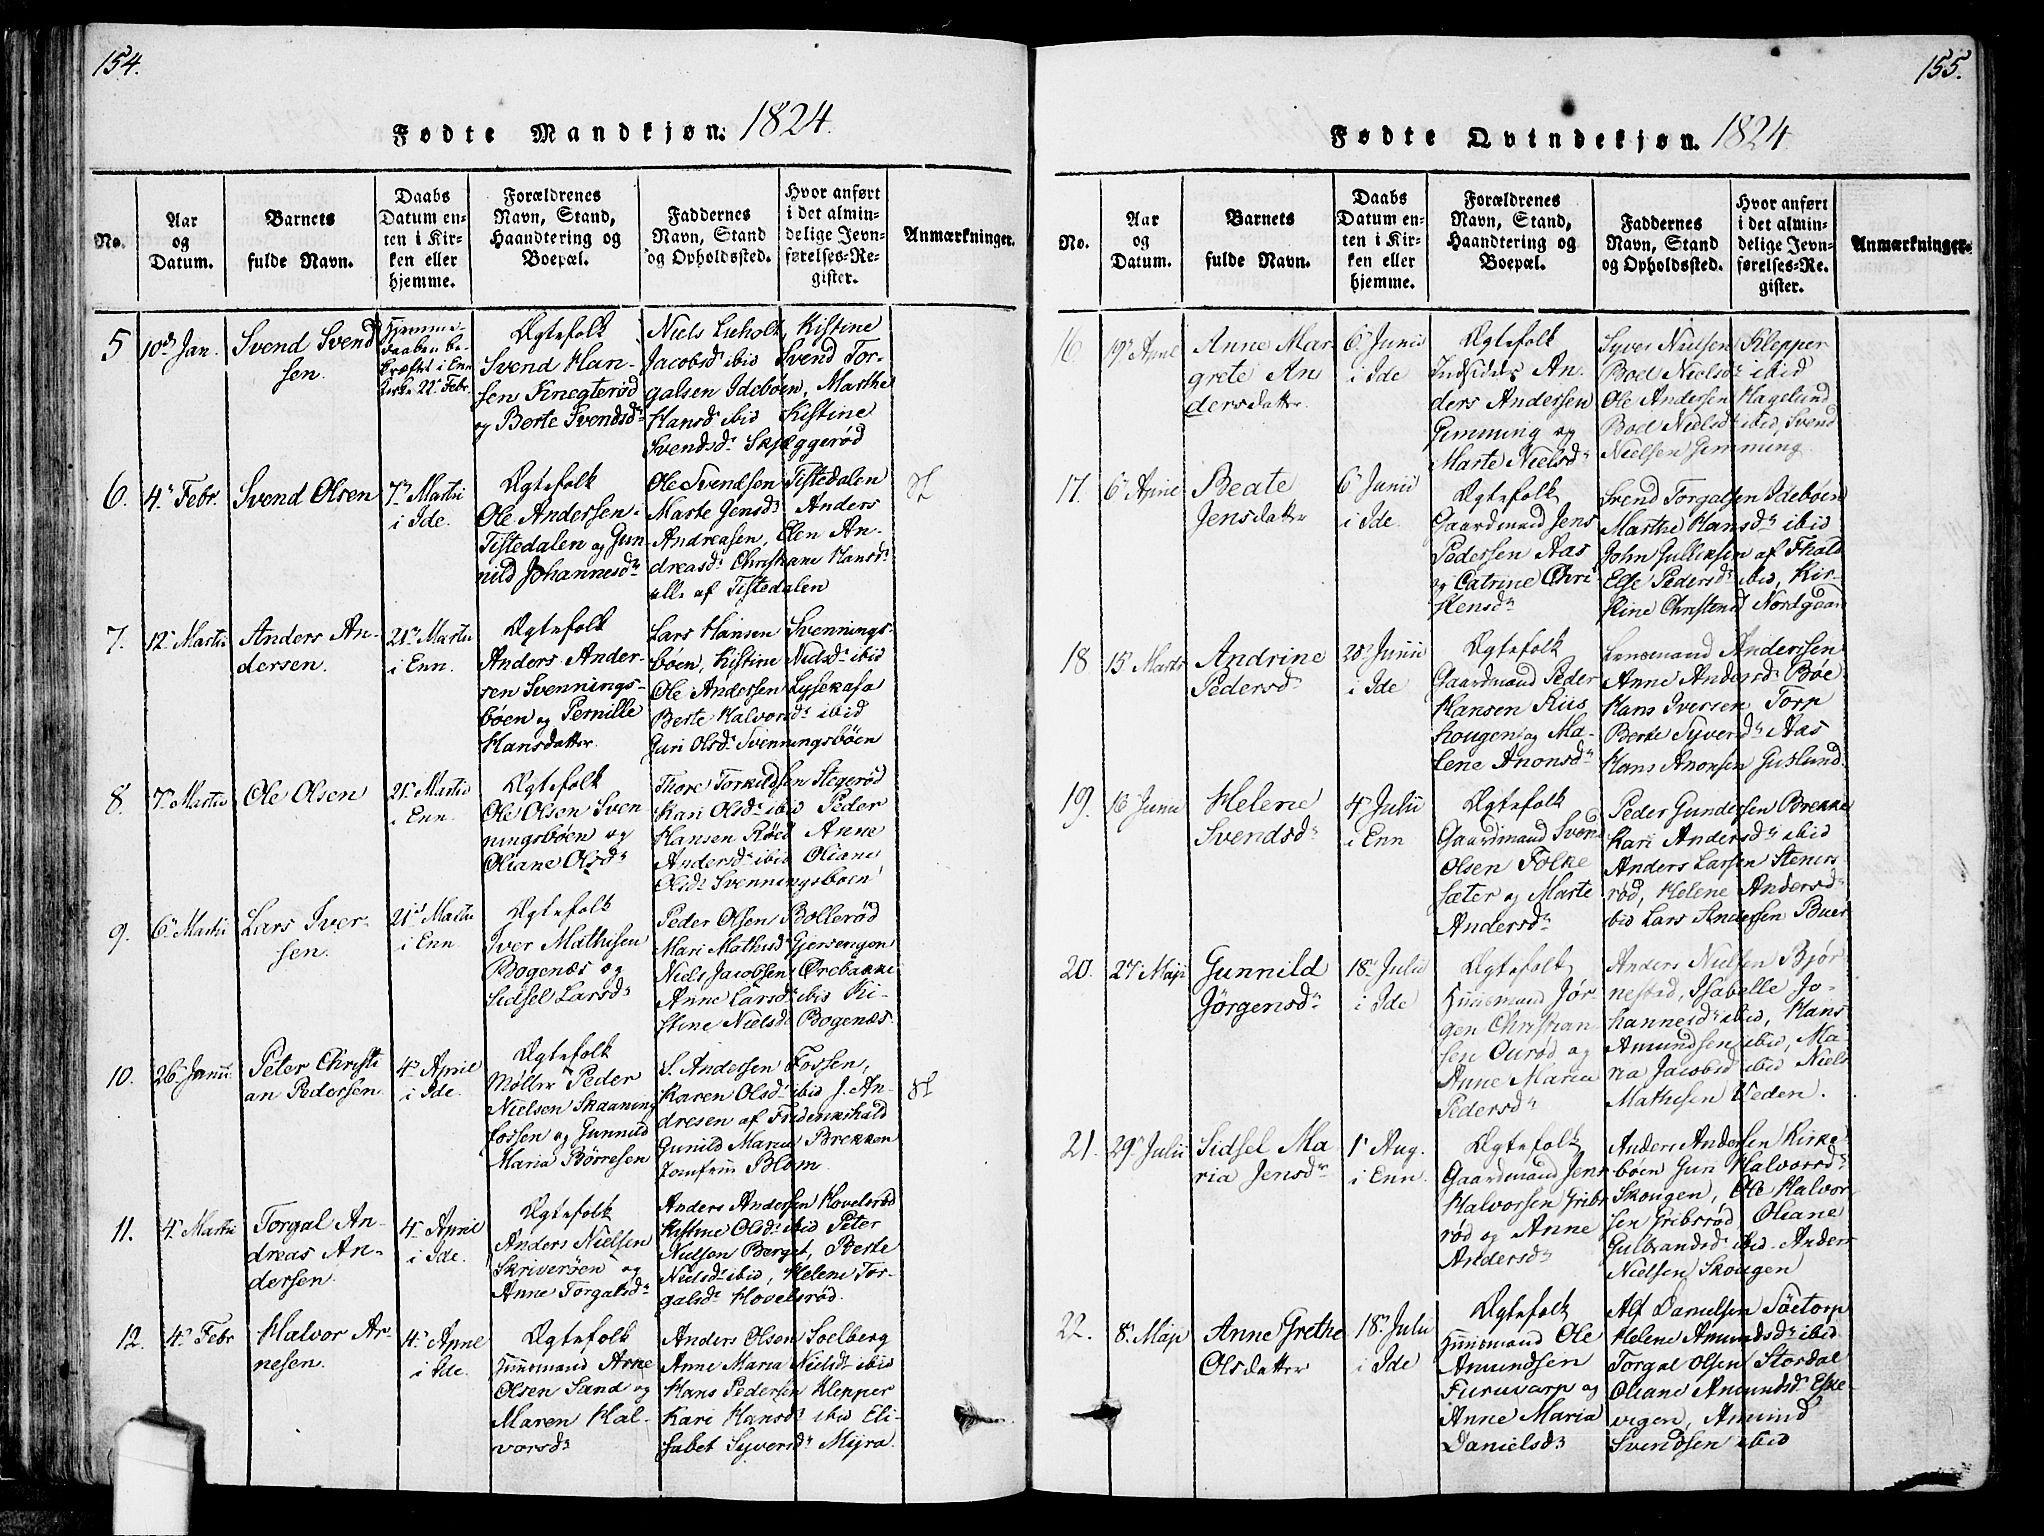 154.
Fødte Mandkjøn. 1824.
No.
Aar
og
Datum.
Barnets
fulde Navn.
Daabs
Datum en-
ten i Kir-
ken eller
hjemme.
Forældrenes
Navn, Stand,
Haandtering og
Boepæl.
Faddernes
Navn, Stand
og Opholdssted.
Hvor anført
i det almin-
delige Jevn-
førelses-Re-
gister.
Anmærkninger.
5
10de Jan.
Svend Svend
sen.
Hjemme-
daaben be-
kræftet i Enn
Kirke 22 Febr.
Ægtefolk
Svend Han-
sen Knegterød
og Berte Svendsdr
Niels Lieholt, Kistine
Jacobsdr ibid Svend Tor-
galsen Idebøen, Marthe
Hansdr ibid Kistine
Svendsdr Skjeggerød
6.
4 Febr.
Svend Olsen
7 Martii
i Ide.
Ægtefolk
Ole Andersen i
Tistedalen og Gun-
nild Johannesdr
Ole Svendsen Tistedalen
Marte Jensdr Anders
Andreasen, Elen An-
dreasdr Christiane Hansdr
alle af Tistedalen
7.
12 Martii
Anders An-
dersen.
21 Martii
i Enn.
Ægtefolk
Anders Ander-
sen Svennings-
bøen og Pernille
Hansdatter.
Lars Hansen Svennings-
bøen, Kistine Nielsdr ibid
Ole Andersen Lysekasa
Berte Halvorsdr ibid
Guri Olsdr Svenningsbøen
8.
7 Martii
Ole Olsen
21 Martii
i Enn.
Ægtefolk
Ole Olsen Sven
ningsbøen og
Oliane Olsdr
Thore Torkildsen Stegerød
Kari Olsdr ibid Peder
Hansen Røed Anne
Andersdr ibid Oliane
Olsdr Svenningsbøen
9.
6 Martii
Lars Iver-
sen.
21 Martii
i Enn
Ægtefolk
Iver Mathisen
Bogenæs og
Sidsel Larsdr
Peder Olsen Bollerød
Mari Mathisdr Gjersengen
Niels Jacobsen Ørebakke
Anne Larsdr ibid Ki-
stine Nielsdr Bogenæs.
10.
26 Janu.
Peter Christi
an Pedersen
4 April
i Ide.
Ægtefolk
Møller Peder
Nielsen Skaaning
fossen og Gunnild
Maria Børresen
S. Andersen Fossen,
Karen Olsdr ibid J. An-
dresen af Friderikshald
Gunild Marie Brekken
Jomfrue Blom.
11.
4 Martii
Torgal An-
dreas An-
dersen
4 April
i Ide.
Ægtefolk
Anders Nielsen
Skriverøen og
Anne Torgalsdr
Anders Andersen Hovelsrød
Kistine Olsdr ibid Peter
Nielsen Berget, Berte
Nielsdr ibid, Helene Tor-
galsdr Hovelsrød.
12.
4 Febr
Halvor Ar-
nesen.
4 April
i Ide.
Ægtefolk
Huusmand Arne
Olsen Sand og
Maren Hal-
vorsdr
Anders Olsen Soelberg
Anne Maria Nielsdr ibid
Hans Pedersen Klepper
Kari Hansdr ibid Eli-
sabet Syversdr Myra.
155.
Fødte Qvindekjøn. 1824
No.
Aar
og
Datum.
Barnets
fulde Navn.
Daabs
Datum en-
ten i Kir-
ken eller
hjemme.
Forældrenes
Navn, Stand,
Haandtering og
Boepæl.
Faddernes
Navn, Stand
og Opholdssted.
Hvor anført
i det almin-
delige Jevn-
førelses-Re-
gister.
Anmærkninger.
16.
19 April
Anne Mar-
grete An
dersdatter
6 Junii
i Ide
Ægtefolk
Indsidder An-
ders Andersen
Gimming og
Marte Nielsdr
Syver Nielsen Klepper
Boel Nielsdr ibid
Ole Andersen Hagelund
Boel Nielsdr ibid, Svend
Nielsen Gimming.
17.
6 April
Beate
Jensdatter
6 Junii
i Ide.
Ægtefolk
Gaardmand Jens
Pedersen Aas
og Catrine Chri-
stensdr
Svend Torgalsen Idebøen
Marthe Hansdr ibid
John Gulliksen af Fhald
Else Pedersdr ibid, Kir-
stine Christensd Nordgaar
18
15 Marts
Andrine
Pedersdr
20 Junii
i Ide
Ægtefolk
Gaardmand Peder
Hansen Riis
hougen og Ma-
lene Anonsdr
Lensmand Andersen
Anne Andersdr Bøe
Hans Iversen Torp
Berte Syversdr Aas
Hans Anonsen Guslund
19.
16 Junii
Helene
Svendsdr
4 Julii
i Enn
Ægtefolk
Gaardmand Svend
Olsen Folke
sæter og Marte
Andersdr
Peder Gundersen Brekke
Kari Andersdr ibid
Anders Larsen Steners
rød, Helene Andersdr
ibid Lars Andersen Buer
20.
27 Maji
Gunnild
Jørgensdr
18 Julii
i Ide
Ægtefolk
Huusmand Jør-
gen Christian
sen Ourød og
Anne Maria
Pedersdr
Anders Nielsen Bjør
nestad, Isabelle Jo-
hannesdr ibid, Hans
Amundsen ibid, Ma-
ria Jacobsd ibid Niels
Mathisen Veden.
21.
29 Julii
Sidsel Ma
ria Jensdr
1 Aug.
i Enn.
Ægtefolk
Gaardmand Jens
Halvorsen Gribs
rød og Anne
Andersdr
Anders Andersen Kirke-
bøen Guri Halvorsdr
Skougen, Ole Halvor-
sen Gribsrød, Oliane
Gulbrandsdr ibid. Anders
Nielsen Skougen
22.
8 Maji
Anne Grethe
Olsdatter
18 Julii
i Ide
Ægtefolk
Huusmand Ole
Amundsen
Furuvarp og
Anne Maria
Danielsdr
Alf Danielsen Søetorp
Helene Amundsdr ibid
Torgal Olsen Stordal
Oliane Amundsdr Eske-
vigen, Amund
Svendsen ibid